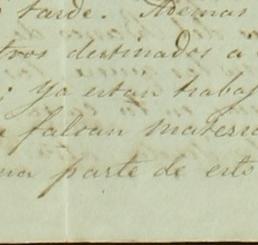 tarde. Ademas
tros destinados a
; Ya estan trabaj
faltan materia
na parte de esto